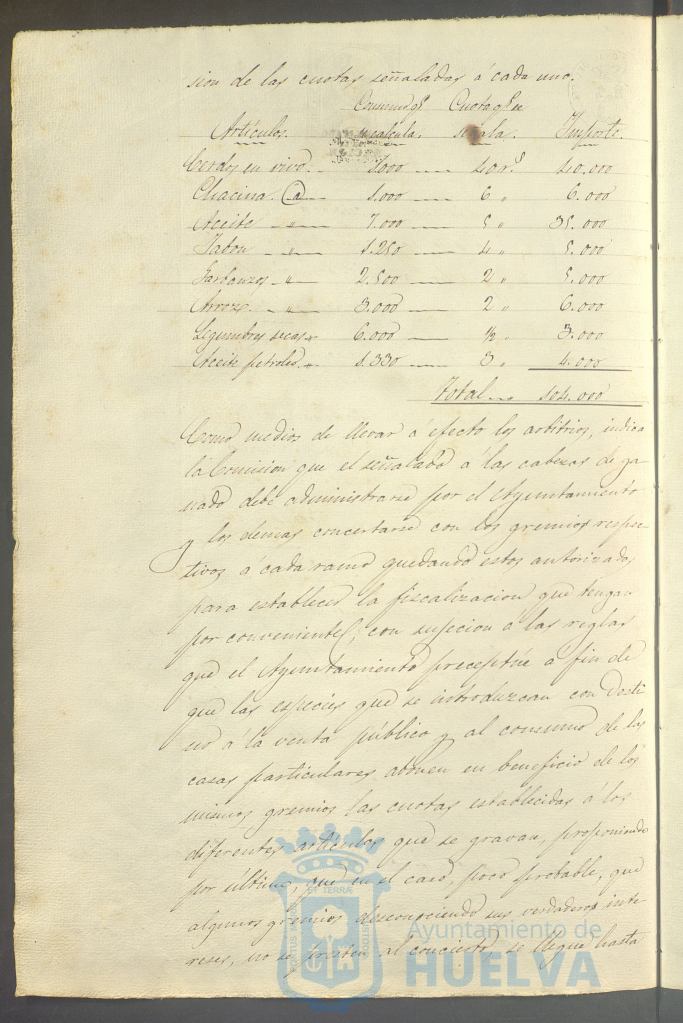 sion de las cuotas señaladas á cada uno.
Consumo qe Cuota qe se
Artículos. se calcula. señala. Importe.
Cerdos en vivo. 1.000 40 rs 40.000
Chacina. @ 1.000 6 " 6.000
Aceite " 7.000 5 " 35.000
Jabon " 1.250 4 " 5.000
Garbanzos " 2.500 2 " 5.000
Arroz " 3.000 2 " 6.000
Legumbres secas " 6.000 1/2 " 3.000
Aceite petroleo " 1.330 3 " 4.000
Total 104.000
Como medios de llevar á efecto los arbitrios, indica
la Comision que el señalado á las cabezas de ga
nado debe administrarse por el Ayuntamiento
y los demas concertarse con los gremios respec-
tivos á cada ramo quedando estos autorizados
para establecer la fiscalizacion que tengan
por conveniente, con sujecion á las reglas
que el Ayuntamiento preceptúe á fin de
que las especies que se introduzcan con desti
no á la venta pública y al consumo de las
casas particulares abonen en beneficio de los
mismos gremios las cuotas establecidas á los
diferentes artículos que se gravan, proponiendo
por último, que en el caso, poco probable, que
algunos gremios desconociendo sus verdaderos inte
reses, no se presten al concierto, se llegue hasta
Ayuntamiento de
HUELVA